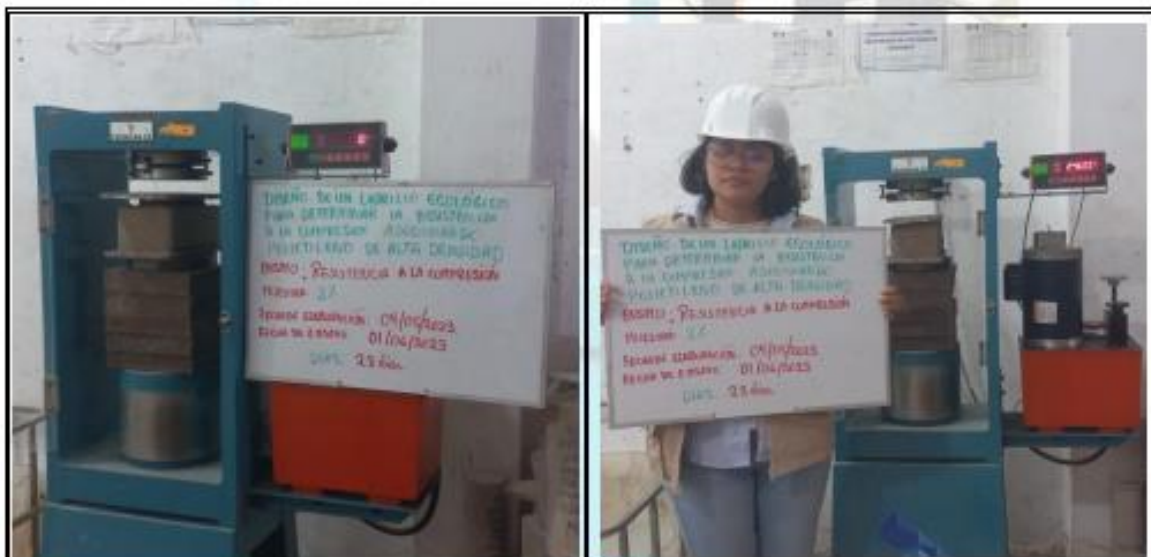 DISEÑO DE UN LADRILLO ECOLÓGICO
PARA DETERMINAR LA RESISTENCIA
A LA COMPRESIÓN ADICIONANDO
POLIETILENO DE ALTA DENSIDAD
ENSAYO: RESISTENCIA A LA COMPRESIÓN
MUESTRA: 2%
FECHA DE ELABORACIÓN: 04/05/2023
FECHA DE ENSAYO: 01/06/2023
DÍAS: 28 días
DISEÑO DE UN LADRILLO ECOLÓGICO
PARA DETERMINAR LA RESISTENCIA
A LA COMPRESIÓN ADICIONANDO
POLIETILENO DE ALTA DENSIDAD
ENSAYO: RESISTENCIA A LA COMPRESIÓN
MUESTRA: 2%
FECHA DE ELABORACIÓN: 04/05/2023
FECHA DE ENSAYO: 01/06/2023
DÍAS: 28 días